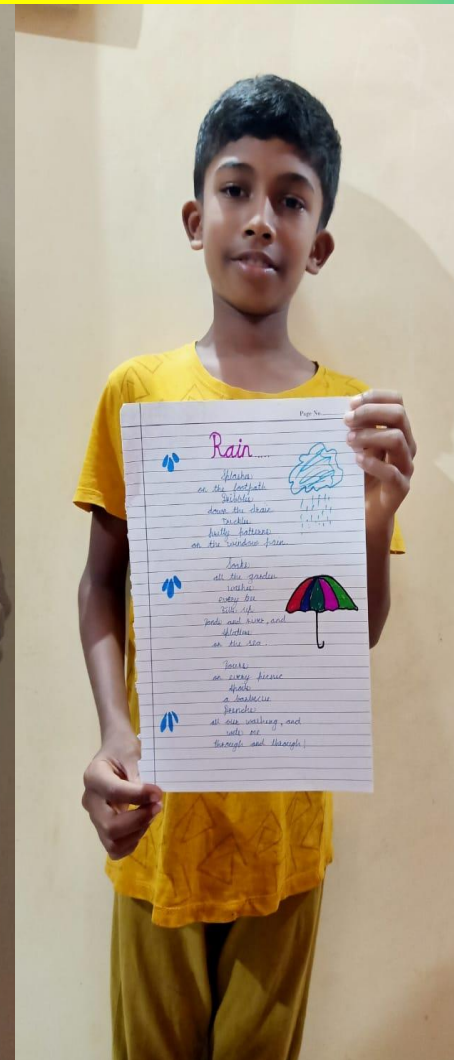 Page No.
Rain.....
Splashes
on the footpath
Dribbles
down the drain
Trickles
pretty patterns
on the window pain
Soaks
all the garden
washes
every tree
Fills up
Ponds and rivers, and
splatters
on the sea.
Pours
on every picnic
Spoils
a barbecue
Drenches
all our washing, and
wets me
through and through!